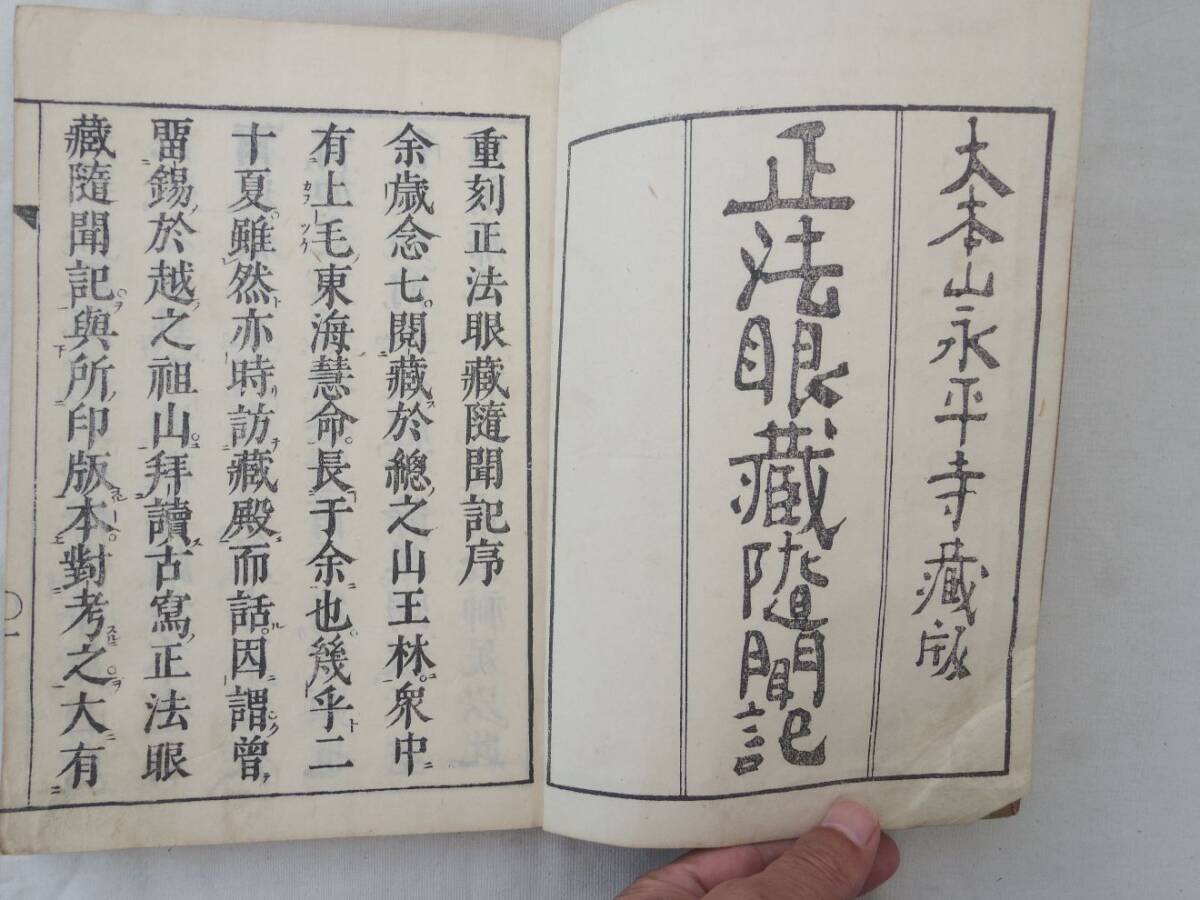 大本山永平寺藏版
正法眼藏隨聞記
重刻正法眼藏隨聞記序
余歲念七閱藏於總之山王林衆中
有上毛東海慧命長于余也幾乎二
十夏雖然亦時訪藏殿而話因謂曾
畱錫於越之祖山拜讀古寫正法眼
藏隨聞記與所印版本對考之大有